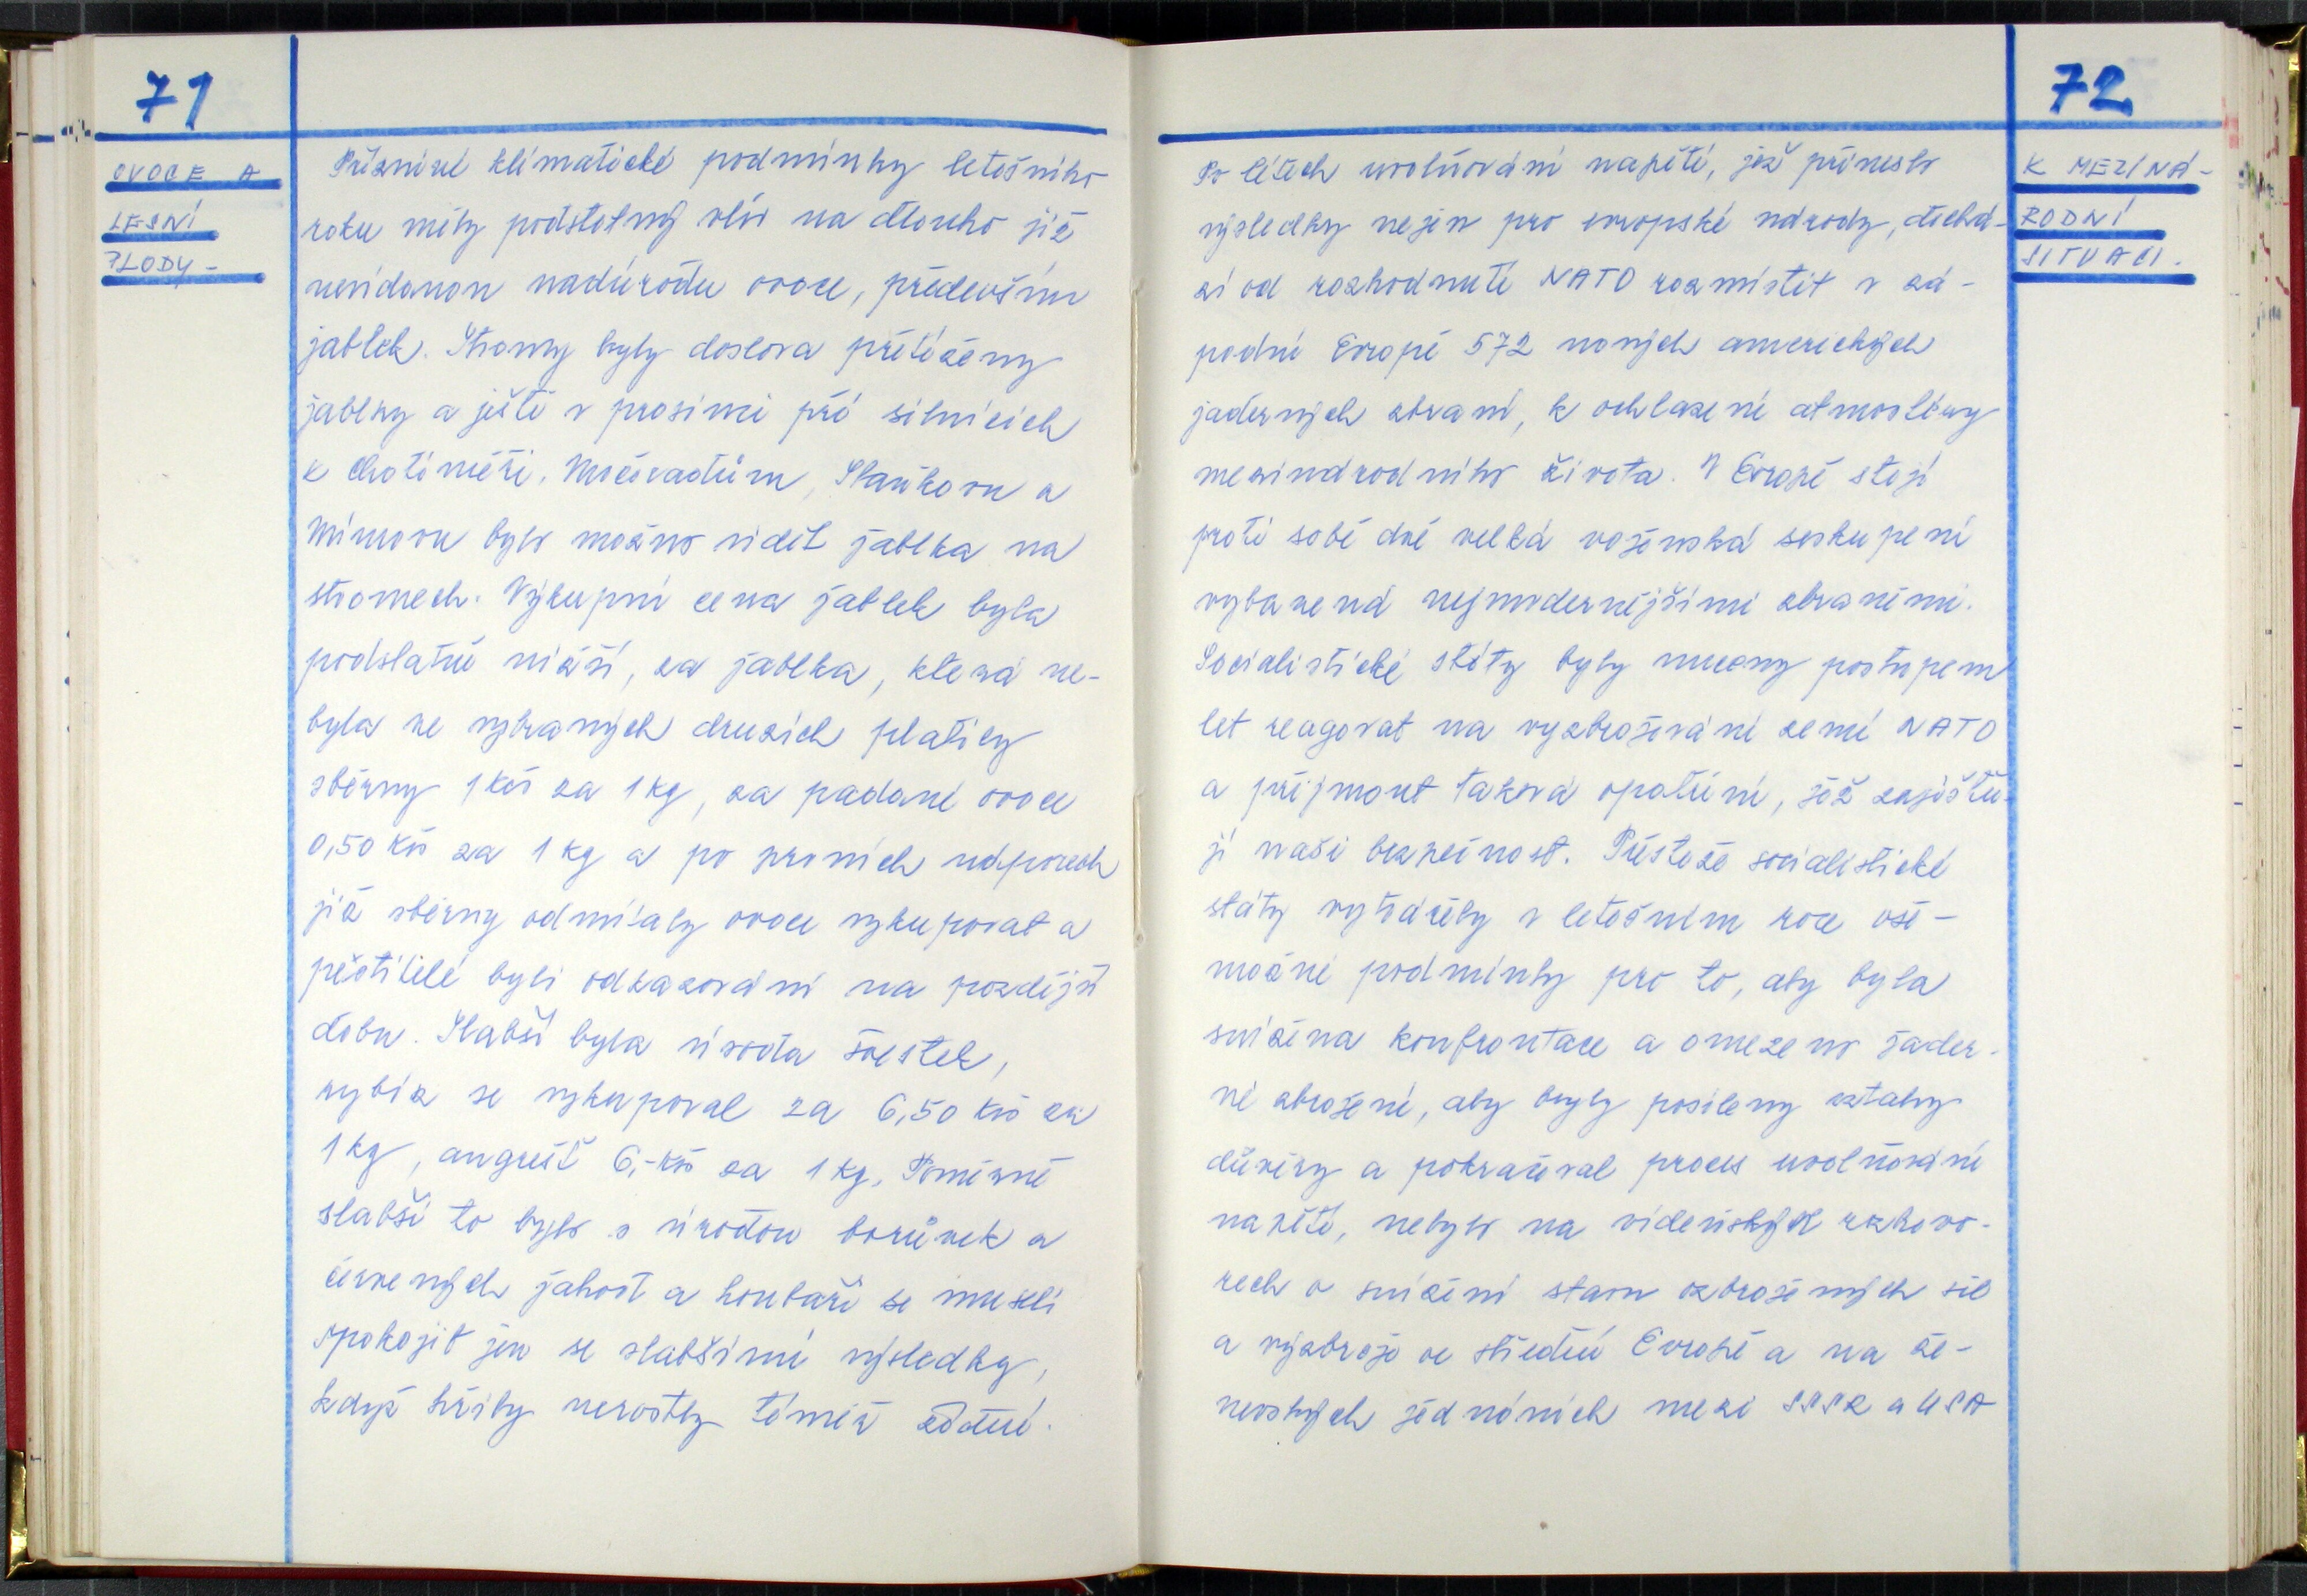 71
OVOCE A
LESNÍ
PLODY -
Příznivé klimatické podmínky letošního
roku měly podstatný vliv na dlouho již
nevídanou nadúrodu ovoce, především
jablek. Stromy byly doslova přetíženy
jablky a ještě v prosinci při silnicích
k Chotiměři, Močovadlům, Staňkovu a
Mimovu bylo možno vidět jablka na
stromech. Výkupní cena jablek byla
podstatně nižší, za jablka, která ne-
byla ve vybraných druzích platily
sběrny 1 Kčs za 1 kg, za padané ovoce
0,50 Kčs za 1 kg a po prvních náporech
již sběrny odmítaly ovoce vykupovat a
pěstitelé byli odkazováni na pozdější
dobu. Slabší byla úroda švestek,
rybíz se vykupoval za 6,50 Kčs za
1 kg, angrešt 6,- Kčs za 1 kg. Poměrně
slabší to bylo s úrodou borůvek a
červených jahod a houbaři se museli
spokojit jen se slabšími výsledky,
když hřiby nerostly téměř žádné.
72
K MEZINÁ-
RODNÍ
SITUACI.
Po létech uvolňování napětí, jež přineslo
výsledky nejen pro evropské národy, dochá-
zí od rozhodnutí NATO rozmístit v zá-
padní Evropě 572 nových amerických
jaderných zbraní, k ochlazení atmosféry
mezinárodního života. V Evropě stojí
proti sobě dvě velká vojenská seskupení
vybavená nejmodernějšími zbraněmi.
Socialistické státy byly nuceny postupem
let reagovat na vyzbrojování zemí NATO
a přijmout taková opatření, jež zajišťu-
jí naši bezpečnost. Přestože socialistické
státy vytvářely v letošním roce vše-
možné podmínky pro to, aby byla
snížena konfrontace a omezeno jader-
né zbrojení, aby byly posíleny vztahy
důvěry a pokračoval proces uvolňování
napětí, nebylo na vídeňských rozhovo-
rech o snížení stavu ozbrojených sil
a výzbroje ve střední Evropě a na že-
nevských jednáních mezi SSSR a USA